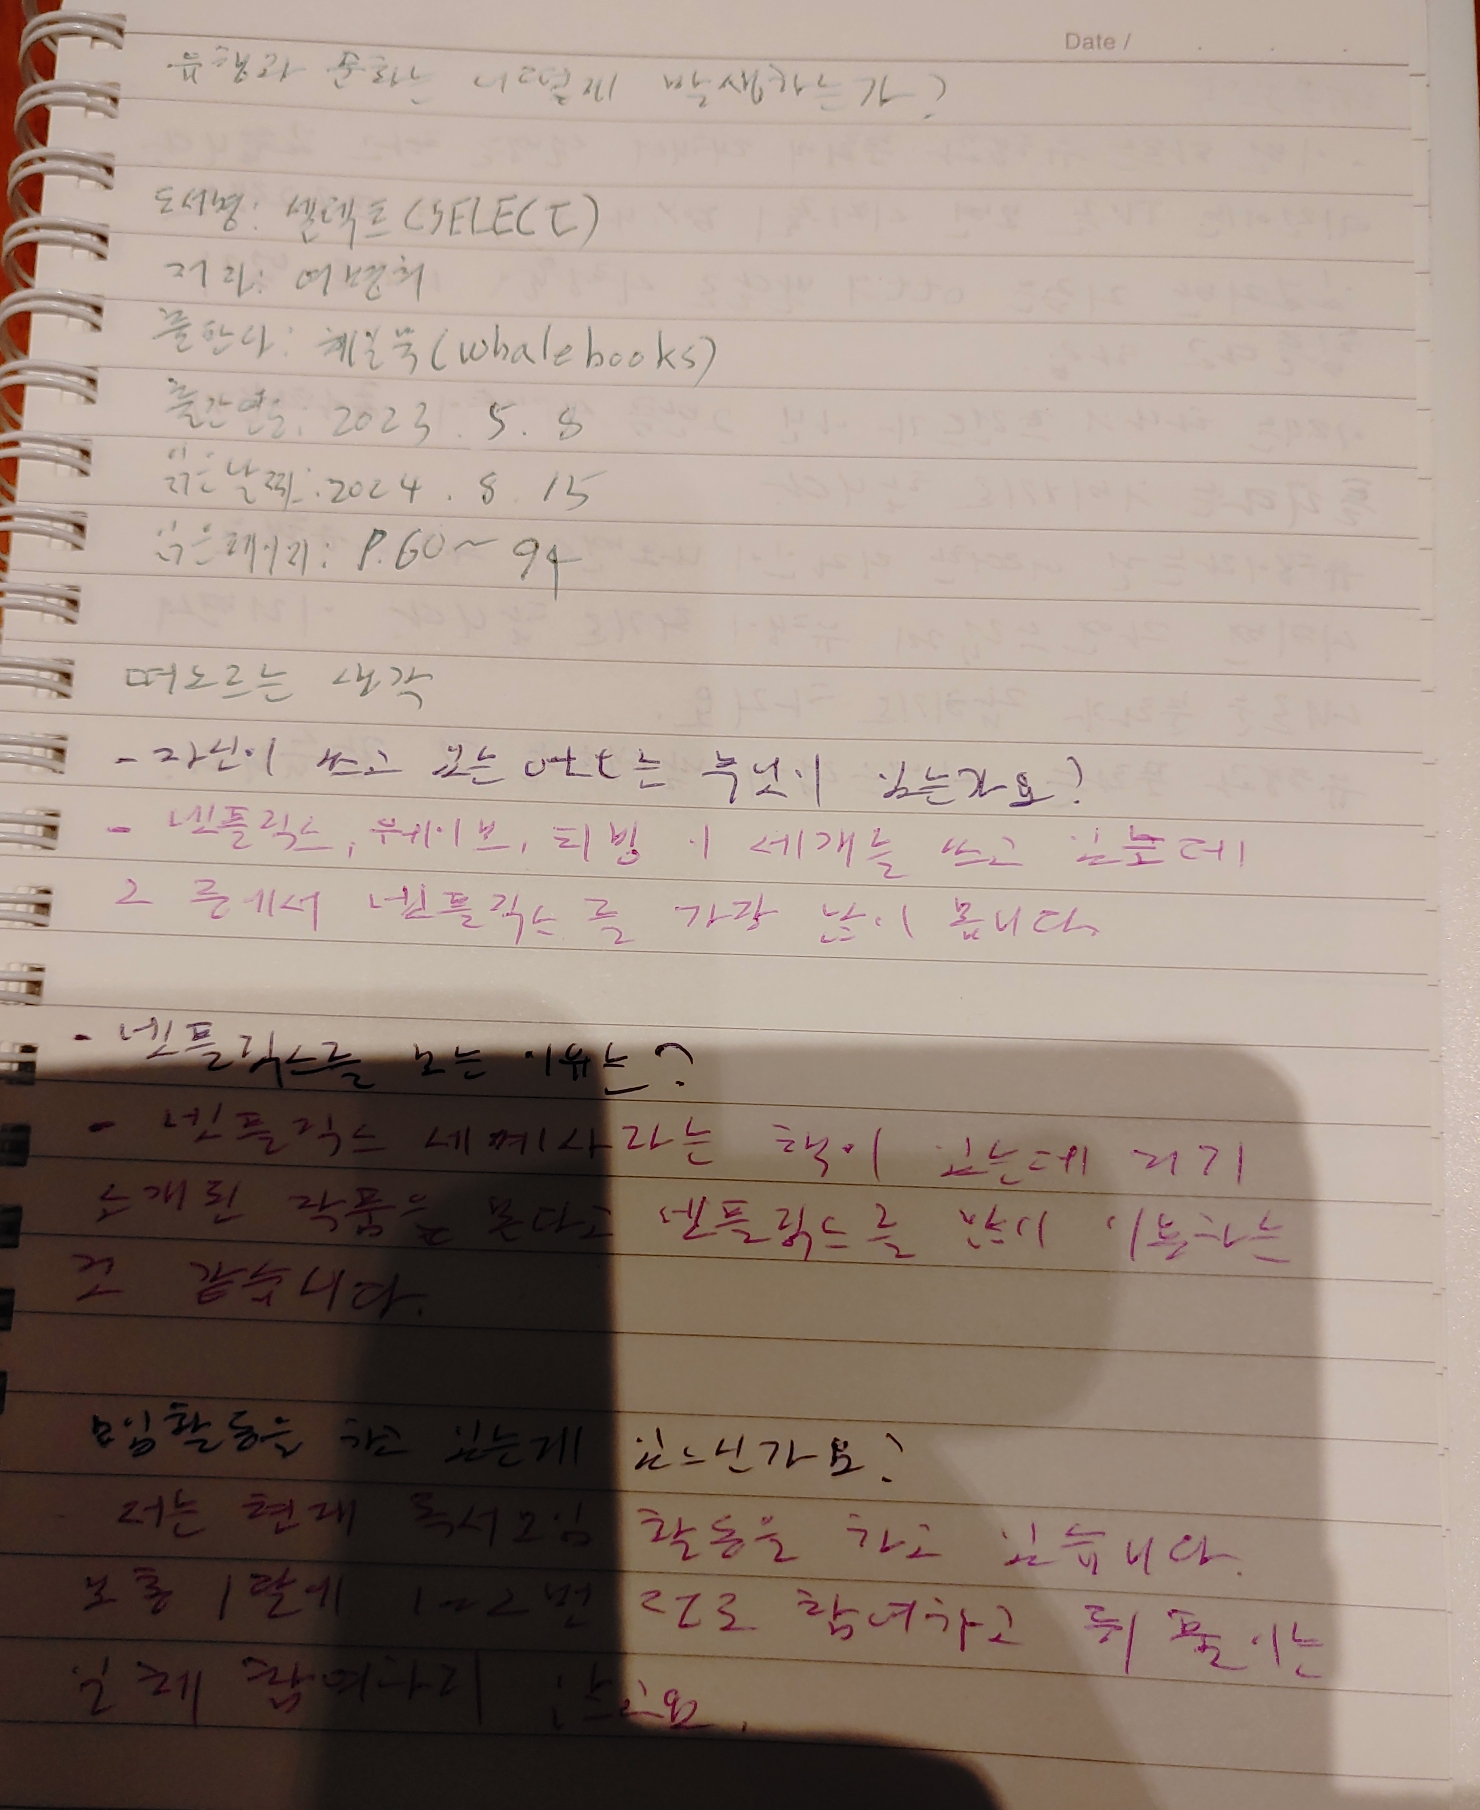 Date /
유행과 문화는 어떻게 발생하는가?
도서명: 셀렉트(SELECT)
저자: 여병희
출판사: 웨일북(whalebooks)
출간연도: 2023. 5. 8
읽은날짜: 2024. 8. 15
읽은페이지: P.60~94
떠오르는 생각
- 자신이 쓰고 있는 ott는 무엇이 있는가요?
- 넷플릭스, 웨이브, 티빙 이 세개를 쓰고 있는데
그 중에서 넷플릭스를 가장 많이 봅니다.
- 넷플릭스를 보는 이유는?
- 넷플릭스 세계사라는 책이 있는데 거기
소개된 작품을 본다고 넷플릭스를 많이 이용하는
것 같습니다.
모임활동을 하고 있는게 있으신가요?
저는 현재 독서모임 활동을 하고 있습니다.
보통 1달에 1~2번 정도 참여하고 뒤풀이는
일체 참여하지 않고요.